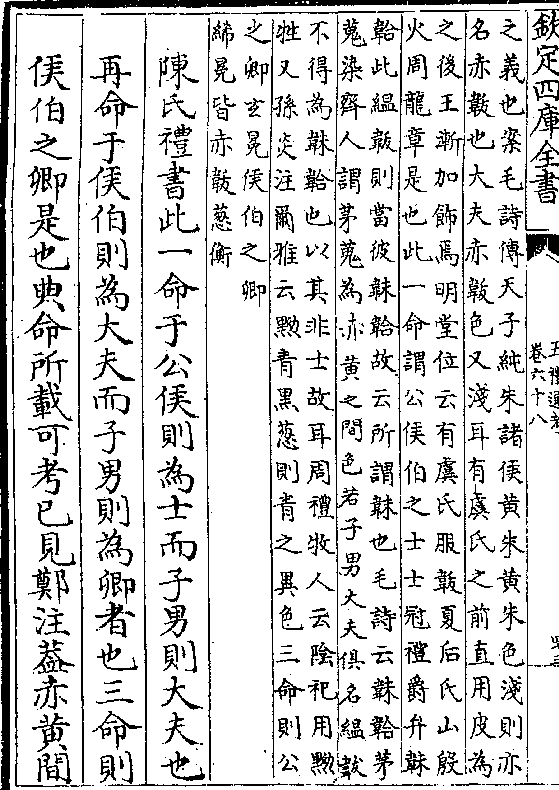 欽定四庫全書
五禮通考
卷六十八
之義也案毛詩傳天子純朱諸侯黄朱黄朱色淺則亦
名赤韍也大夫赤韍色又淺耳有虞氏之前直用皮為
之後王漸加飾焉明堂位云有虞氏服韍夏后氏山殷
火周龍章是也此一命謂公侯伯之士士冠禮爵弁韎
韐此緼韍則當彼韎韐故云所謂韎也毛詩云韎韐茅
蒐染齊人謂茅蒐為赤黄之間色若子男大夫俱名緼韍
不得為韎韐也以其非士故耳周禮牧人云陰祀用黝
牲又孫炎注爾雅云黝青黑葱則青之異色三命則公
之卿玄冕侯伯之卿
絺冕皆赤韍葱衡
陳氏禮書此一命于公侯則為士而子男則大夫也
再命于侯伯則為大夫而子男則為卿者也三命則
侯伯之卿是也典命所載可考已見鄭注葢赤黄間